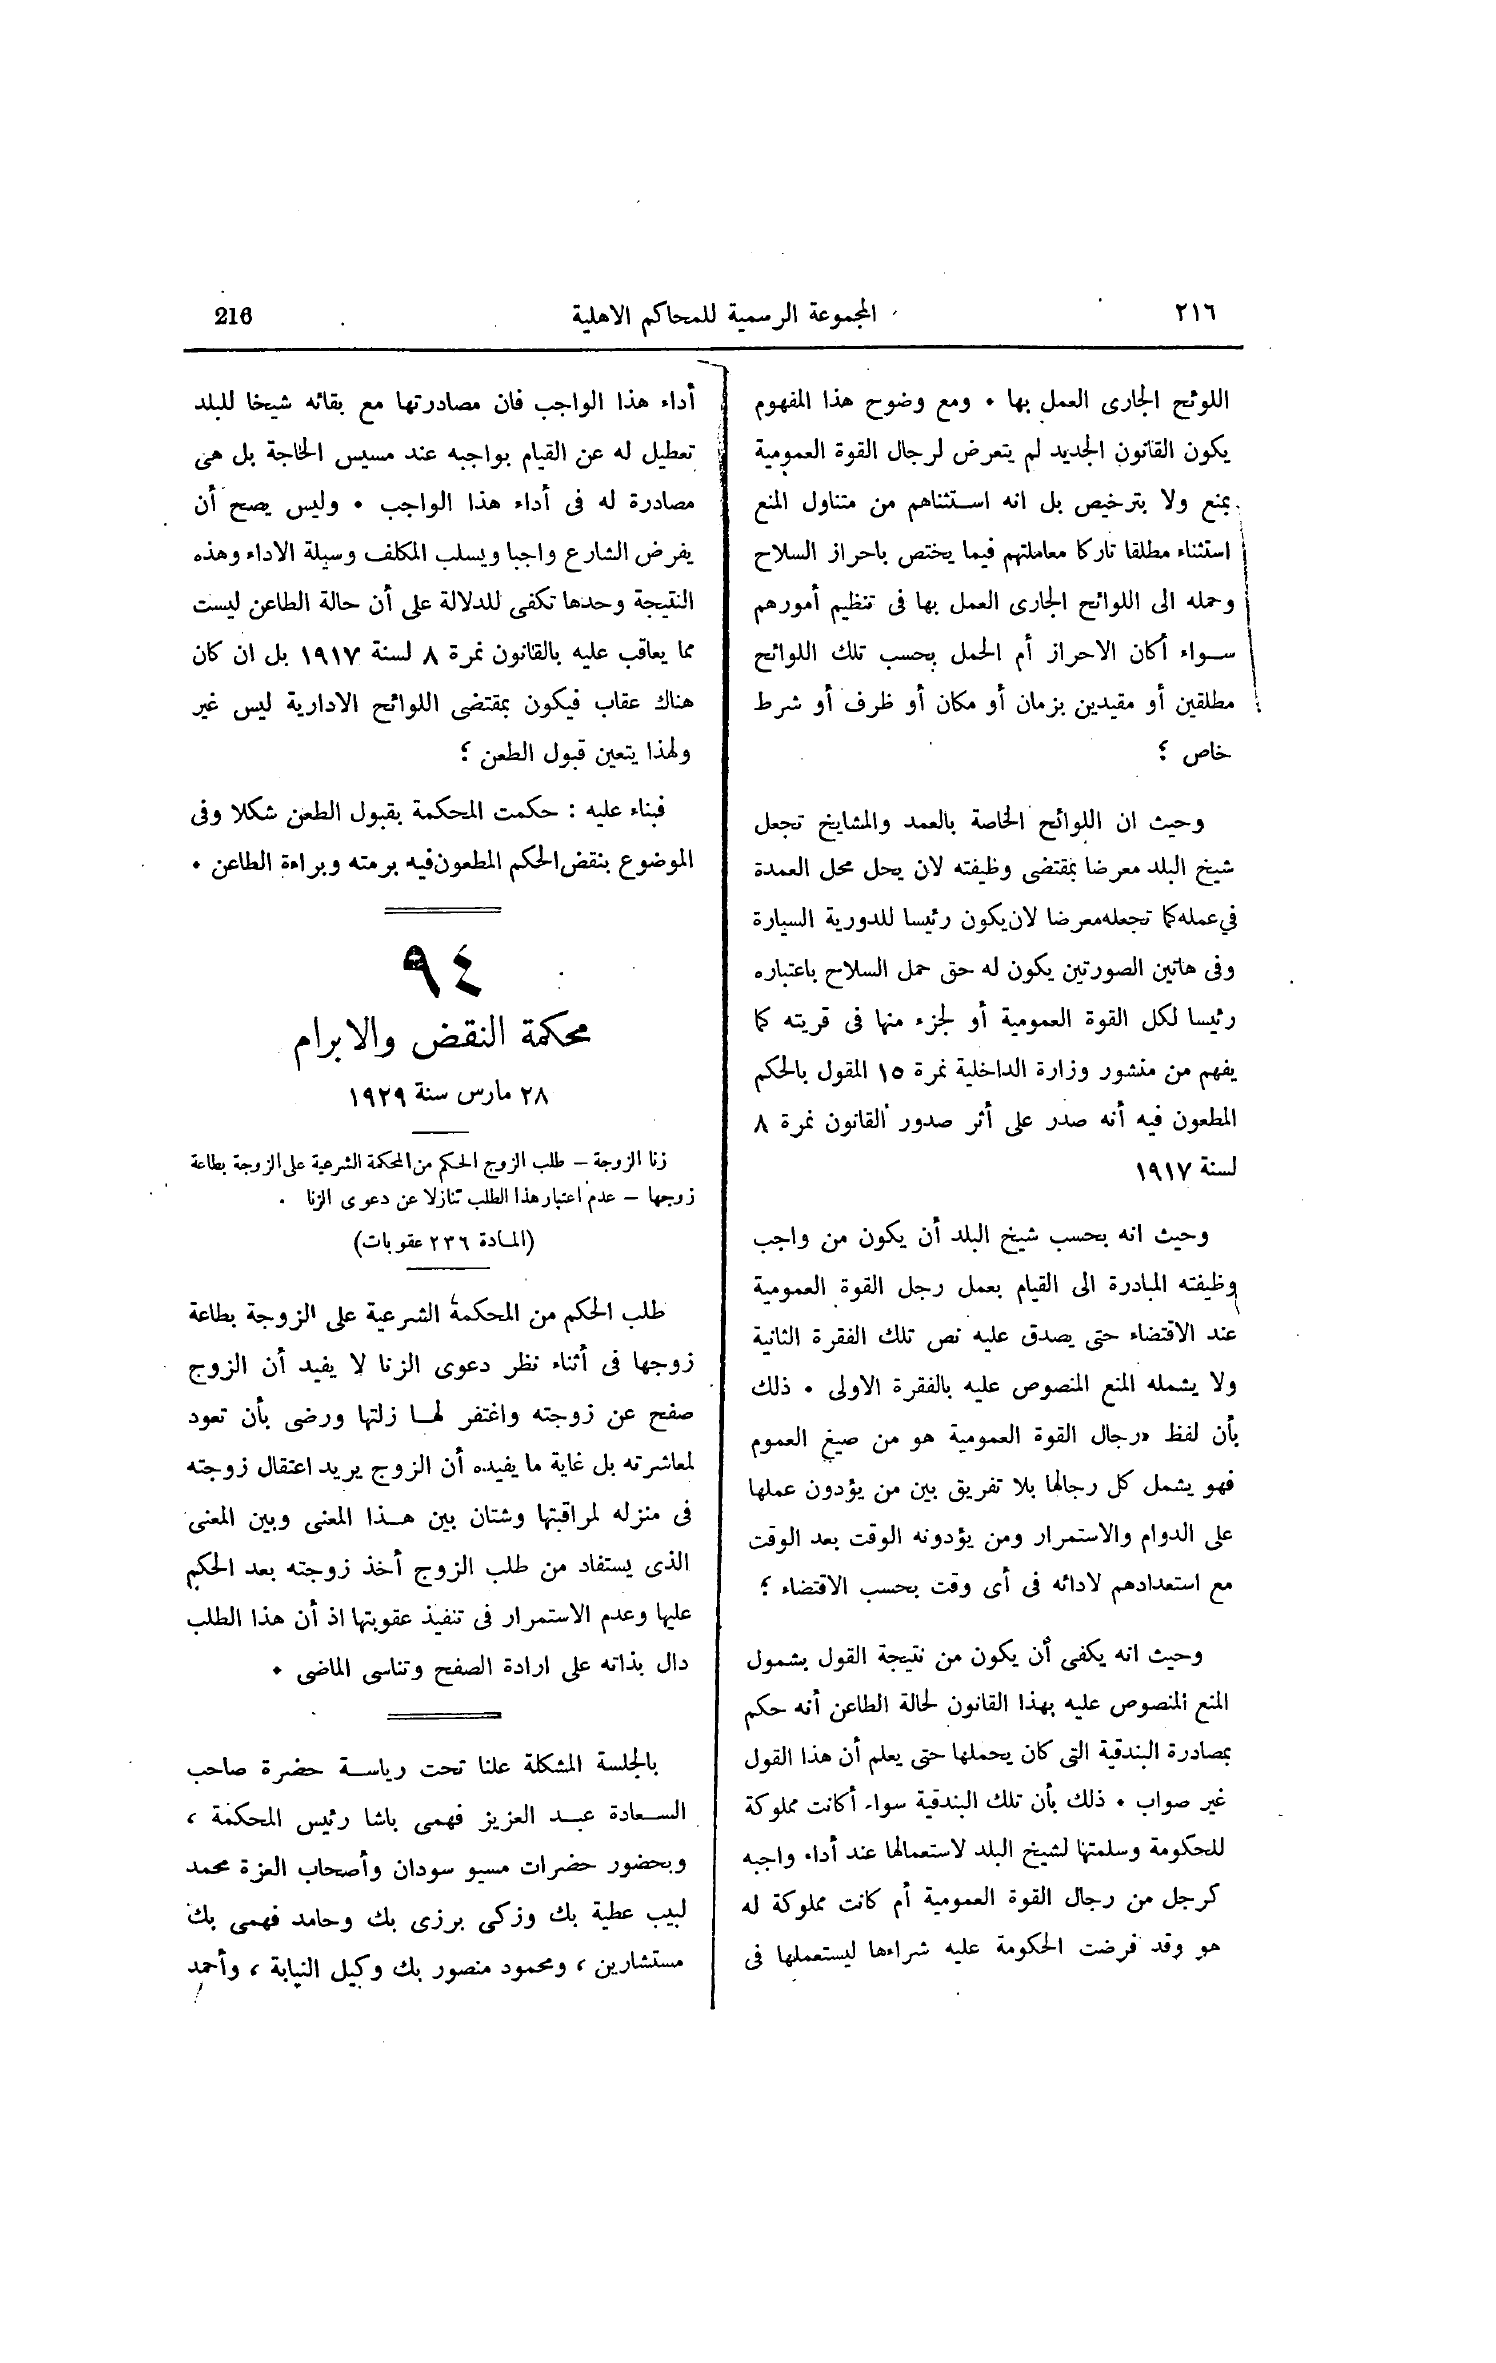 ٢١٦ المجموعة الرسمية للمحاكم الاهلية 216
اللوائح الجارى العمل بها ٠ ومع وضوح هذا المفهوم
يكون القانون الجديد لم يتعرض لرجال القوة العمومية
بمنع ولا بترخيص بل انه استثناهم من متناول المنع
استثناء مطلقا تاركا معاملتهم فيما يختص باحراز السلاح
وحمله الى اللوائح الجارى العمل بها فى تنظيم أمورهم
سواء أكان الاحراز أم الحمل بحسب تلك اللوائح
مطلقين أو مقيدين بزمان أو مكان أو ظرف أو شرط
خاص ؟
وحيث ان اللوائح الخاصة بالعمد والمشايخ تجعل
شيخ البلد معرضا بمقتضى وظيفته لان يحل محل العمدة
في عمله كما تجعله معرضا لان يكون رئيسا للدورية السيارة
وفى هاتين الصورتين يكون له حق حمل السلاح باعتباره
رئيسا لكل القوة العمومية أو لجزء منها فى قريته كما
يفهم من منشور وزارة الداخلية نمرة ١٥ المقول بالحكم
المطعون فيه أنه صدر على أثر صدور القانون نمرة ٨
لسنة ١٩١٧
وحيث انه بحسب شيخ البلد أن يكون من واجب
وظيفته المبادرة الى القيام بعمل رجل القوة العمومية
عند الاقتضاء حتى يصدق عليه نص تلك الفقرة الثانية
ولا يشمله المنع المنصوص عليه بالفقرة الاولى ٠ ذلك
بأن لفظ «رجال القوة العمومية هو من صيغ العموم
فهو يشمل كل رجالها بلا تفريق بين من يؤدون عملها
على الدوام والاستمرار ومن يؤدونه الوقت بعد الوقت
مع استعدادهم لادائه فى أى وقت بحسب الاقتضاء ؛
وحيث انه يكفى أن يكون من نتيجة القول بشمول
المنع المنصوص عليه بهذا القانون لحالة الطاعن أنه حكم
بمصادرة البندقية التى كان يحملها حتى يعلم أن هذا القول
غير صواب ٠ ذلك بأن تلك البندقية سواء أكانت مملوكة
للحكومة وسلمتها لشيخ البلد لاستعمالها عند أداء واجبه
كرجل من رجال القوة العمومية أم كانت مملوكة له
هو وقد فرضت الحكومة عليه شراءها ليستعملها فى
أداء هذا الواجب فان مصادرتها مع بقائه شيخا للبلد
تعطيل له عن القيام بواجبه عند مسيس الحاجة بل هى
مصادرة له فى أداء هذا الواجب ٠ وليس يصح أن
يفرض الشارع واجبا ويسلب المكلف وسيلة الاداء وهذه
النتيجة وحدها تكفى للدلالة على أن حالة الطاعن ليست
مما يعاقب عليه بالقانون نمرة ٨ لسنة ١٩١٧ بل ان كان
هناك عقاب فيكون بمقتضى اللوائح الادارية ليس غير
ولهذا يتعين قبول الطعن ؛
فبناء عليه : حكمت المحكمة بقبول الطعن شكلا وفى
الموضوع بنقض الحكم المطعون فيه برمته وبراءة الطاعن ٠
٩٤
محكمة النقض والابرام
٢٨ مارس سنة ١٩٢٩
زنا الزوجة – طلب الزوج الحكم من المحكمة الشرعية على الزوجة بطاعة
زوجها – عدم اعتبار هذا الطلب تنازلا عن دعوى الزنا ٠
(المادة ٢٣٦ عقوبات)
طلب الحكم من المحكمة الشرعية على الزوجة بطاعة
زوجها فى أثناء نظر دعوى الزنا لا يفيد أن الزوج
صفح عن زوجته واغتفر لها زلتها ورضى بأن تعود
لمعاشرته بل غاية ما يفيده أن الزوج يريد اعتقال زوجته
فى منزله لمراقبتها وشتان بين هذا المعنى وبين المعنى
الذى يستفاد من طلب الزوج أخذ زوجته بعد الحكم
عليها وعدم الاستمرار فى تنفيذ عقوبتها اذ أن هذا الطلب
دال بذاته على ارادة الصفح وتناسى الماضى ٠
بالجلسة المشكلة علنا تحت رياسة حضرة صاحب
السعادة عبد العزيز فهمى باشا رئيس المحكمة ،
وبحضور حضرات مسيو سودان وأصحاب العزة محمد
لبيب عطية بك وزكى برزى بك وحامد فهمى بك
مستشارين ، ومحمود منصور بك وكيل النيابة ، وأحمد